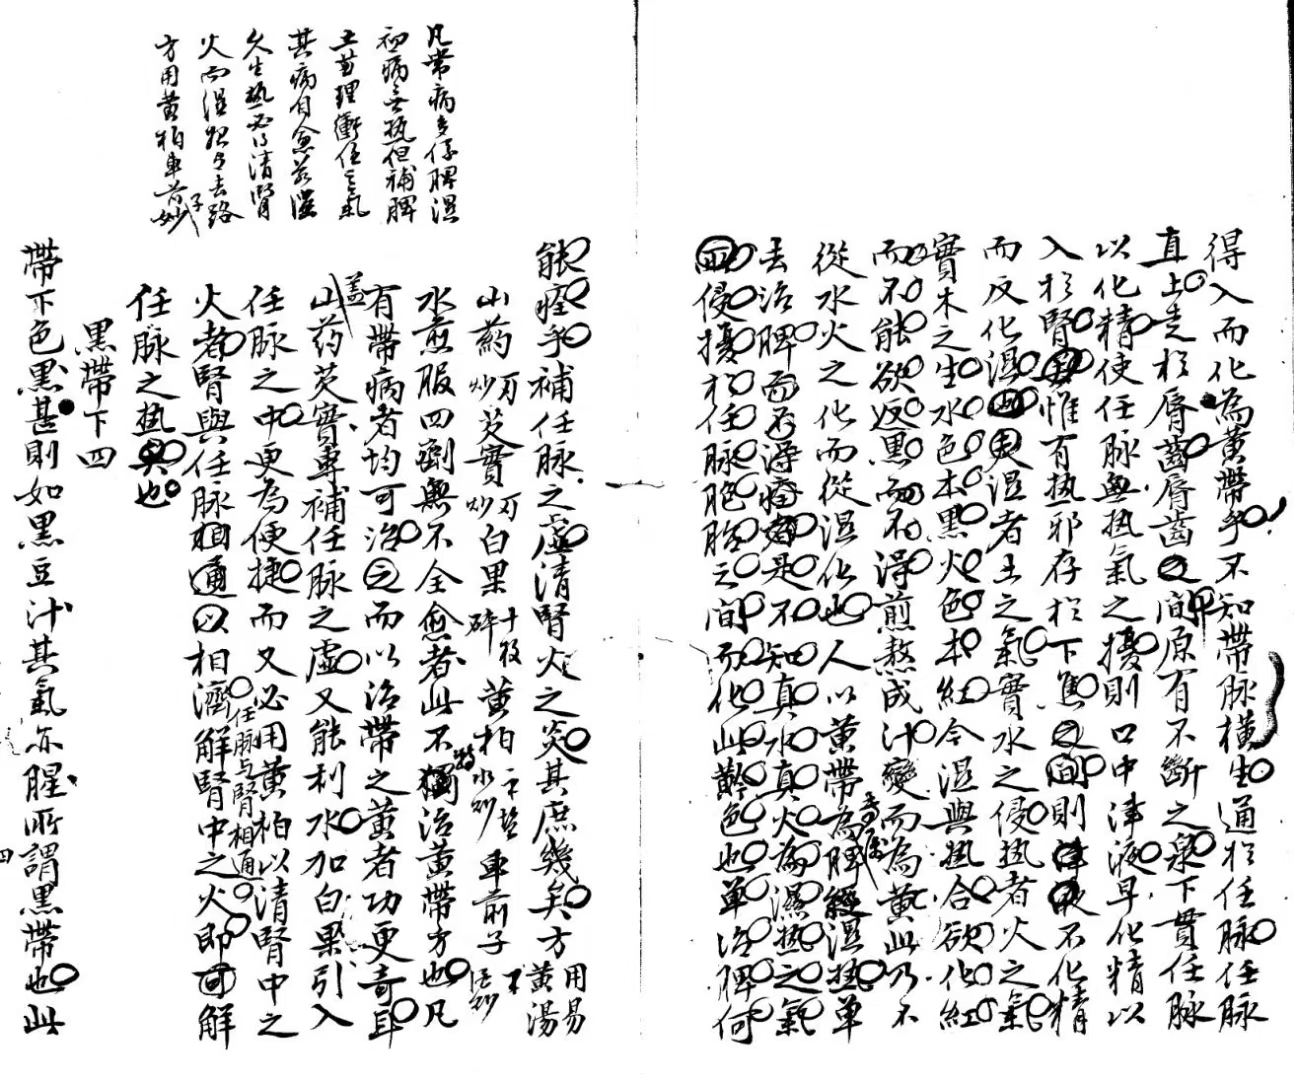 得入而化為黃帶乎不知帶脉橫生通於任脉任脉
直上走於唇齒唇齒之間原有不斷之泉下貫任脉
以化精使任脉無热氣之擾則口中津液早化精以
入於腎矣惟有热邪存於下焦之間則津液不化精
而反化湿也夫湿者土之氣實水之侵热者火之氣
實木之生水色本黑火色本紅今湿與热合欲化紅
而不能欲返黑而不得煎熬成汁變而為黃此乃不
從水火之化而從湿化也人以黃帶為脾經湿热單
去治脾而不得痊者是不知真水真火為濕热之氣
而侵擾於任脉胞胎之間而化此黅色也單治脾何
凡帶病多係脾湿
初病無热但補脾
土兼理衝任之氣
其病自愈若湿
久生热必得清腎
火而湿始有去路
方用黃柏車前子妙
能痊乎補任脉之虛清腎火之炎其庶幾矣方用易黃湯
山药炒 芡實炒 白果十枚碎 黃柏 塩水炒 車前子 酒炒
水煎服四劑無不全愈者此不特獨治黃帶方也凡
有帶病者均可治之而以治帶之黃者功更奇耳
蓋山药芡實專補任脉之虛又能利水加白果引入
任脉之中更為便捷而又必用黃柏以清腎中之
火者腎與任脉相通以相濟解腎中之火即可解
任脉与腎相通
任脉之热矣也
黑帶下四
帶下色黑甚則如黑豆汁其氣亦腥所謂黑帶也此
四